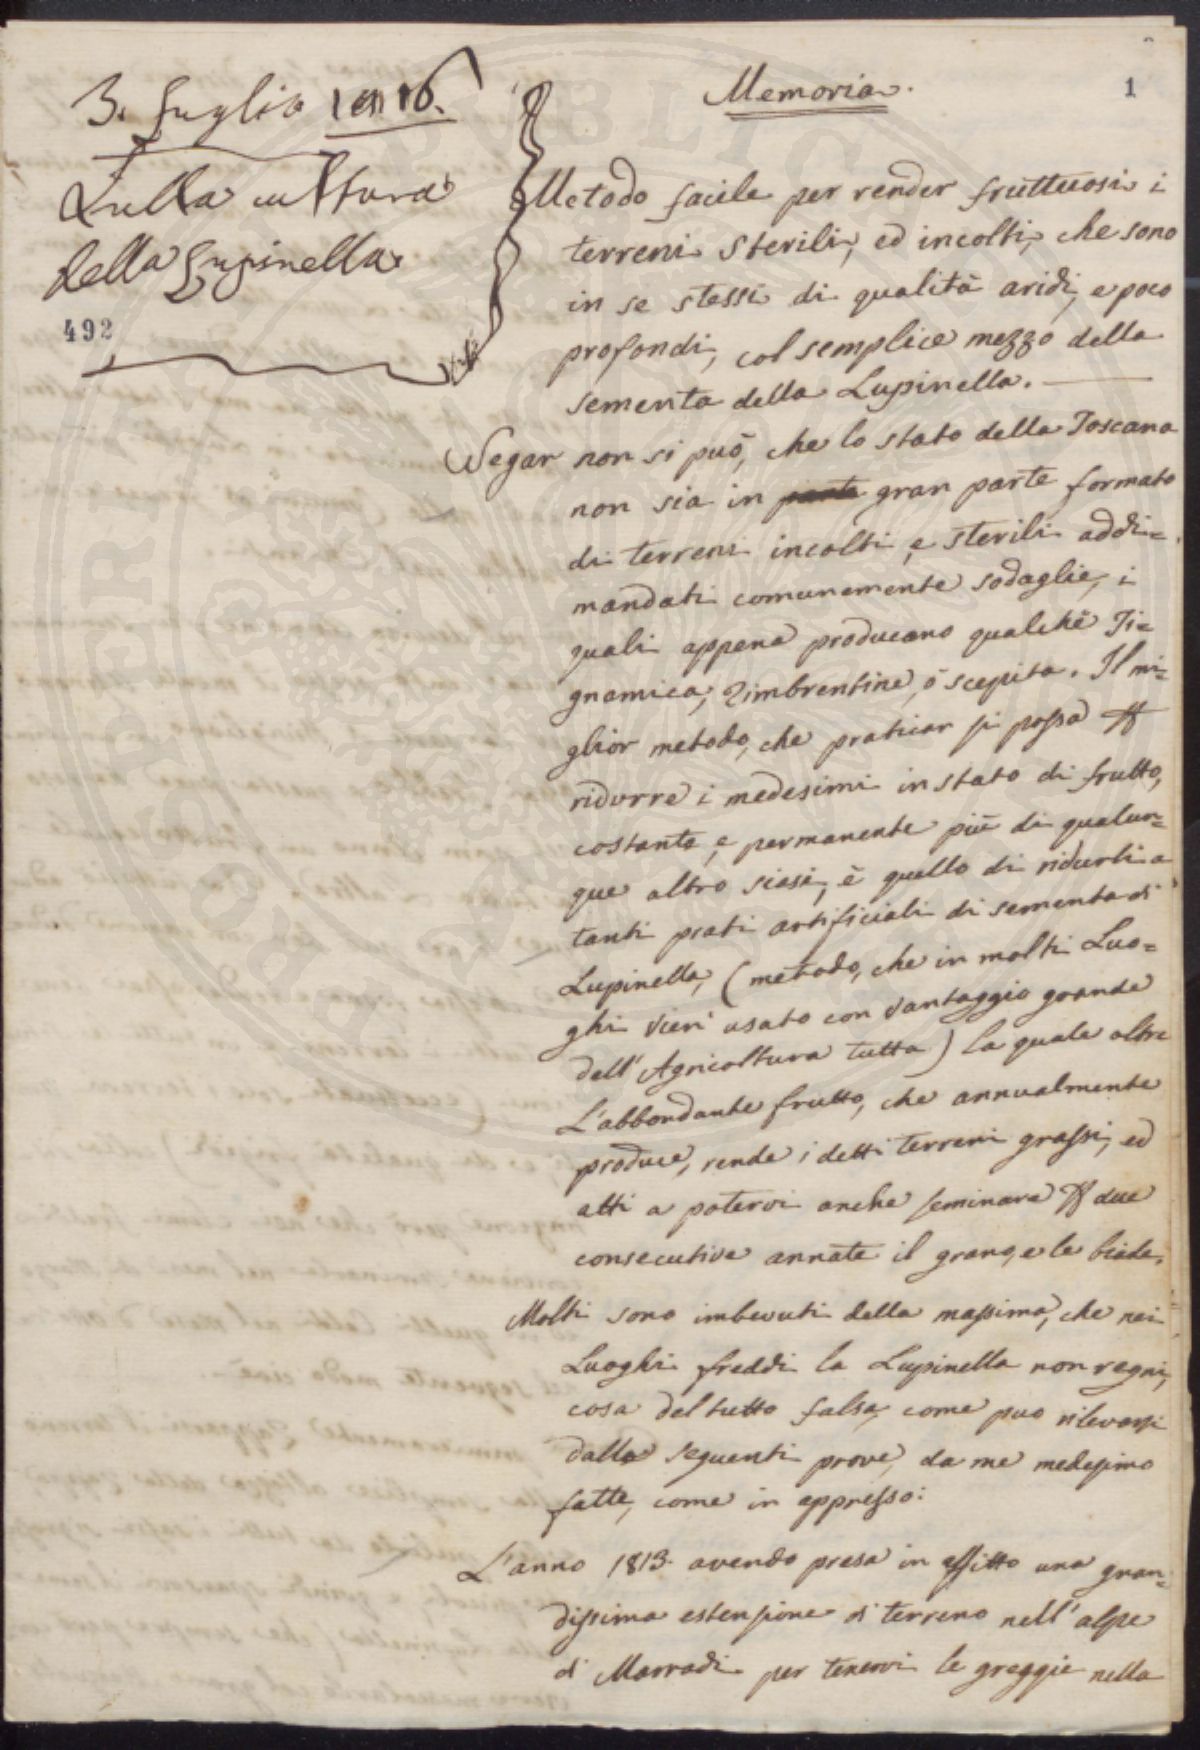 3. Luglio 1816.
Sulla cultura
della Lupinella
492
Memoria.
1
Metodo facile per render fruttuosi i
terreni sterili, ed incolti, che sono
in se stessi di qualità aridi, e poco
profondi, col semplice mezzo della
sementa della Lupinella.
Negar non si può, che lo stato della Toscana
non sia in parte gran parte formato
di terreni incolti, e sterili addi=
mandati comunemente sodaglie, i
quali appena producano qualche Ti=
gnamica, Zimbrentine, ò scepita. Il mi=
glior metodo, che praticar si possa
ridurre i medesimi in stato di frutto,
costante, e permanente più di qualun=
que altro siasi, è quello di ridurli a
tanti prati artificiali di sementa di
Lupinella, (metodo, che in molti Luo=
ghi vien' usato con vantaggio grande
dell'Agricoltura tutta) la quale oltre
L'abbondante frutto, che annualmente
produce, rende i detti terreni grassi, ed
atti a potervi anche seminare due
consecutive annate il grano, e le biade.
Molti sono imbevuti della massima, che nei
Luoghi freddi la Lupinella non regni,
cosa del tutto falsa, come puo rilevarsi
dalle seguenti prove, da me medesimo
fatte, come in appresso:
L'anno 1813. avendo presa in affitto una gran=
dissima estensione di terreno nell'alpe
di Marradi per tenervi le greggie nella